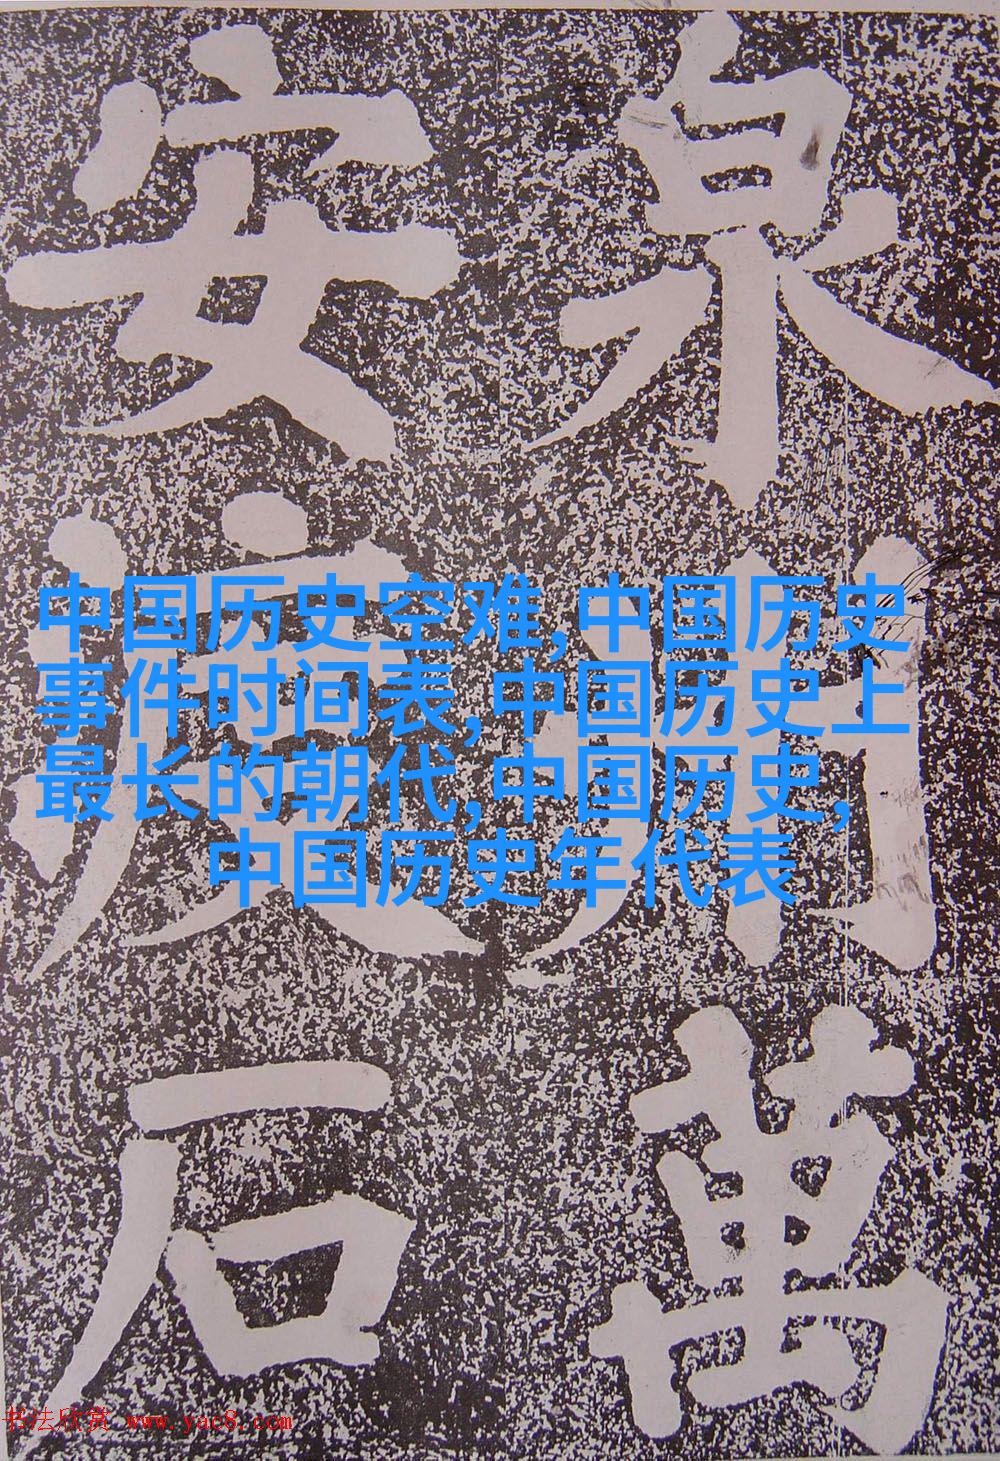 泉州萬
安渡石
中国历史空难,中国历史
事件时间表,中国历史上
最长的朝代,中国历史,
中国历史年代表
书法欣赏 www.yac8.com